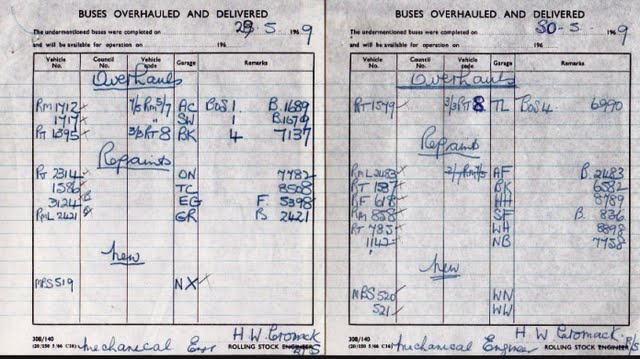 BUSES OVERHAULED AND DELIVERED
The undermentioned buses were completed on 29.5. 1969
and will be available for operation on 196
Vehicle No. Council No. Vehicle code Garage Remarks
Overhauls
RM 1712 7/5 RM 5/7 AC BoS 1. B. 1689
1717 " SW 1 B.1679
RT 1395 3/3 RT 8 BK 4 7137
Repaints
RT 2314 ON 7782
1586 TC 8508
3124 EG F. 5398
RML 2421 GR B. 2421
New
MBS 519 NX
308/140
Mechanical Engr H.W. Cromack
ROLLING STOCK ENGINEER
BUSES OVERHAULED AND DELIVERED
The undermentioned buses were completed on 30-5. 1969
and will be available for operation on 196
Vehicle No. Council No. Vehicle code Garage Remarks
Overhauls
RT 1579 3/3 RT 8 TL BoS 4. 6990
Repaints
RML 2483 AF B. 2483
RT 1537 BK 6582
RF 618 HH 8789
RM 858 SF B. 836
RT 785 WH 8898
1142 NB 7758
New
MBS 520 WN
521 WW
308/140
Mechanical Engineer H.W. Cromack
ROLLING STOCK ENGINEER